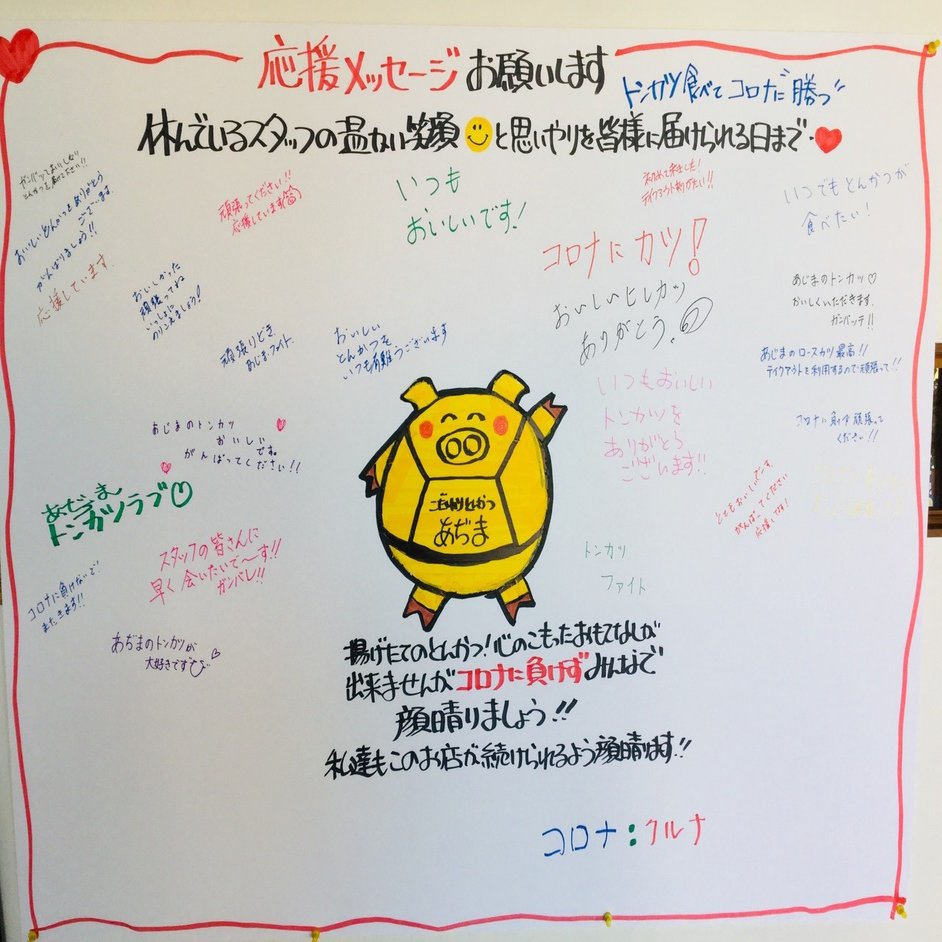 応援メッセージ お願いします
トンカツ食べてコロナに勝つ!!
休んでいるスタッフの温かい笑顔と思いやりを皆様に届けられる日まで
ガンバッておいしい
とんかつを揚げて下さい!!
おいしいとんかつをありがとう
ございます。
がんばりましょう!!
応援しています.
頑張ってください!!
応援しています
いつも
おいしいです!
初めて来ました!
テイクアウトありがたい!!
いつでもとんかつが
食べたい!
コロナにカツ!
おいしいヒレカツ
ありがとう。
あじまのトンカツ♡
おいしくいただきます.
ガンバッテ!!
おいしかった
頑張ってね
いっしょに
のりこえましょう!
頑張りどき
あじま・ファイト.
おいしい
とんかつを
いつも有難うございます
あじまのロースカツ最高!!
テイクアウトを利用するので頑張って!!
いつもおいしい
トンカツを
ありがとう
ございます!!
コロナに負けず頑張って
ください!!
あじまのトンカツ
おいしい
です。
がんばってください!!
あぢま
トンカツラブ♡
こだわりとんかつ
あぢま
とてもおいしいでーす。
がんばってください
応援してます!
スタッフの皆さんに
早く会いたいで〜す!!
ガンバレ!!
トンカツ
ファイト
コロナに負けないで!
また来ます!!
あぢまのトンカツが
大好きです
揚げたてのとんかつ!心のこもったおもてなしが
出来ませんがコロナに負けずみんなで
顔晴りましょう!!
私達もこのお店が続けられるよう顔晴ります!!
コロナ:クルナ